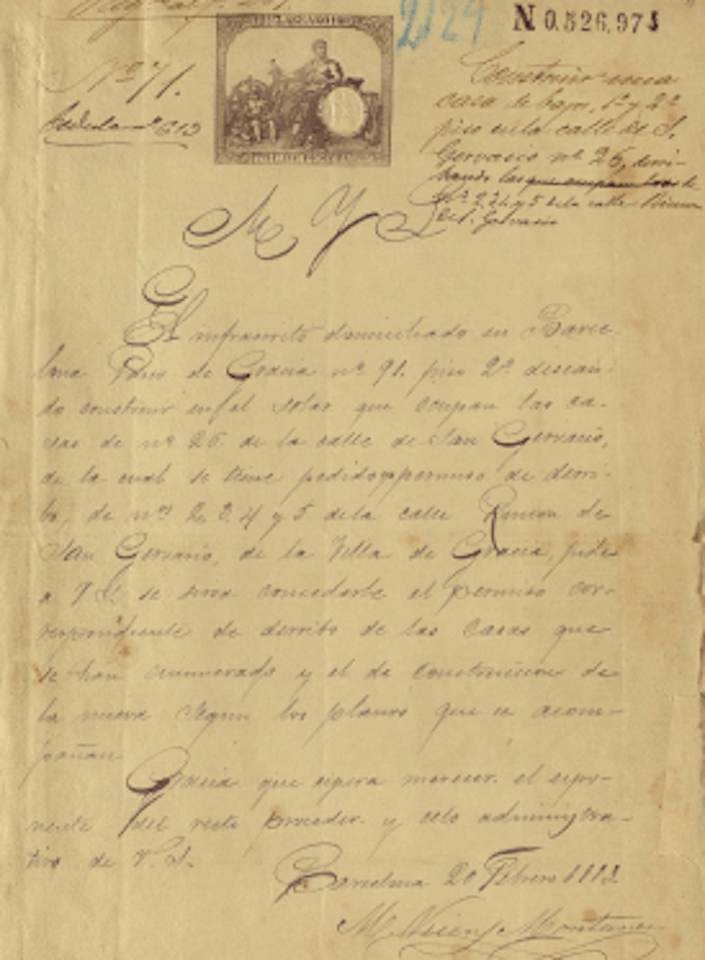 2124
N 0.526.973
Nº 71.
Construir una
casa de bajos, 1º y 2º
piso en la calle de S.
Gervasio nº 26, derri-
bando las que ocupan los
nº 2, 3, 4 y 5 de la calle Rincon
de S. Gervasio
M Y S
El infrascrito domiciliado en Barce-
lona Paseo de Gracia nº 91. piso 2º desean-
do construir en el solar que ocupan las ca-
sas de nº 26. de la calle de San Gervasio,
de la cual se tiene pedido permiso de derri-
bo, de nºs 2, 3, 4 y 5 de la calle Rincon de
San Gervasio, de la Villa de Gracia, pide
a V.S. se sirva concederle el permiso cor-
respondiente de derribo de las casas que
se han enumerado y el de construccion de
la nueva segun los planos que se acom-
pañan
Gracia que espera merecer el espo-
nente del recto proceder y celo administra-
tivo de V. S.
Barcelona 20 Febrero 1883
M. Vicens Montaner